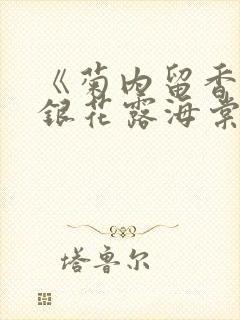 《菊内留香
银花露海棠
塔鲁尔